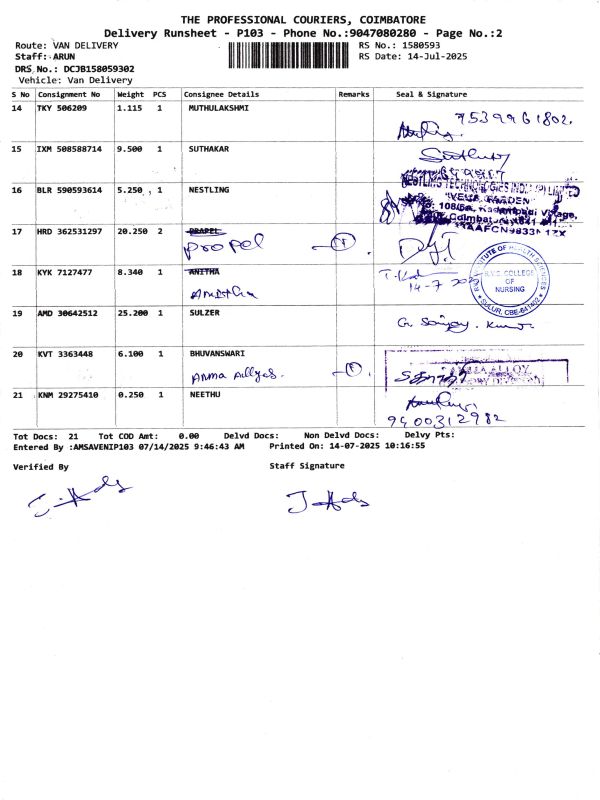 THE PROFESSIONAL COURIERS, COIMBATORE
Delivery Runsheet - P103 - Phone No.:9047080280 - Page No.:2
Route: VAN DELIVERY RS No.: 1580593
Staff: ARUN RS Date: 14-Jul-2025
DRS No.: DCJB158059302
Vehicle: Van Delivery
S No Consignment No Weight PCS Consignee Details Remarks Seal & Signature
14 TKY 506209 1.115 1 MUTHULAKSHMI 9539961802.
15 IXM 508588714 9.500 1 SUTHAKAR
16 BLR 590593614 5.250 1 NESTLING
17 HRD 362531297 20.250 2 PRAPEL
propel
18 KYK 7127477 8.340 1 ANITHA
14-7
R.V.S. COLLEGE
OF
NURSING
INSTITUTE OF HEALTH SCIENCES
SULUR, CBE-641402
19 AMD 30642512 25.200 1 SULZER
20 KVT 3363448 6.100 1 BHUVANSWARI
21 KNM 29275410 0.250 1 NEETHU
9400312982
Tot Docs: 21 Tot COD Amt: 0.00 Delvd Docs: Non Delvd Docs: Delvy Pts:
Entered By :AMSAVENIP103 07/14/2025 9:46:43 AM Printed On: 14-07-2025 10:16:55
Verified By Staff Signature